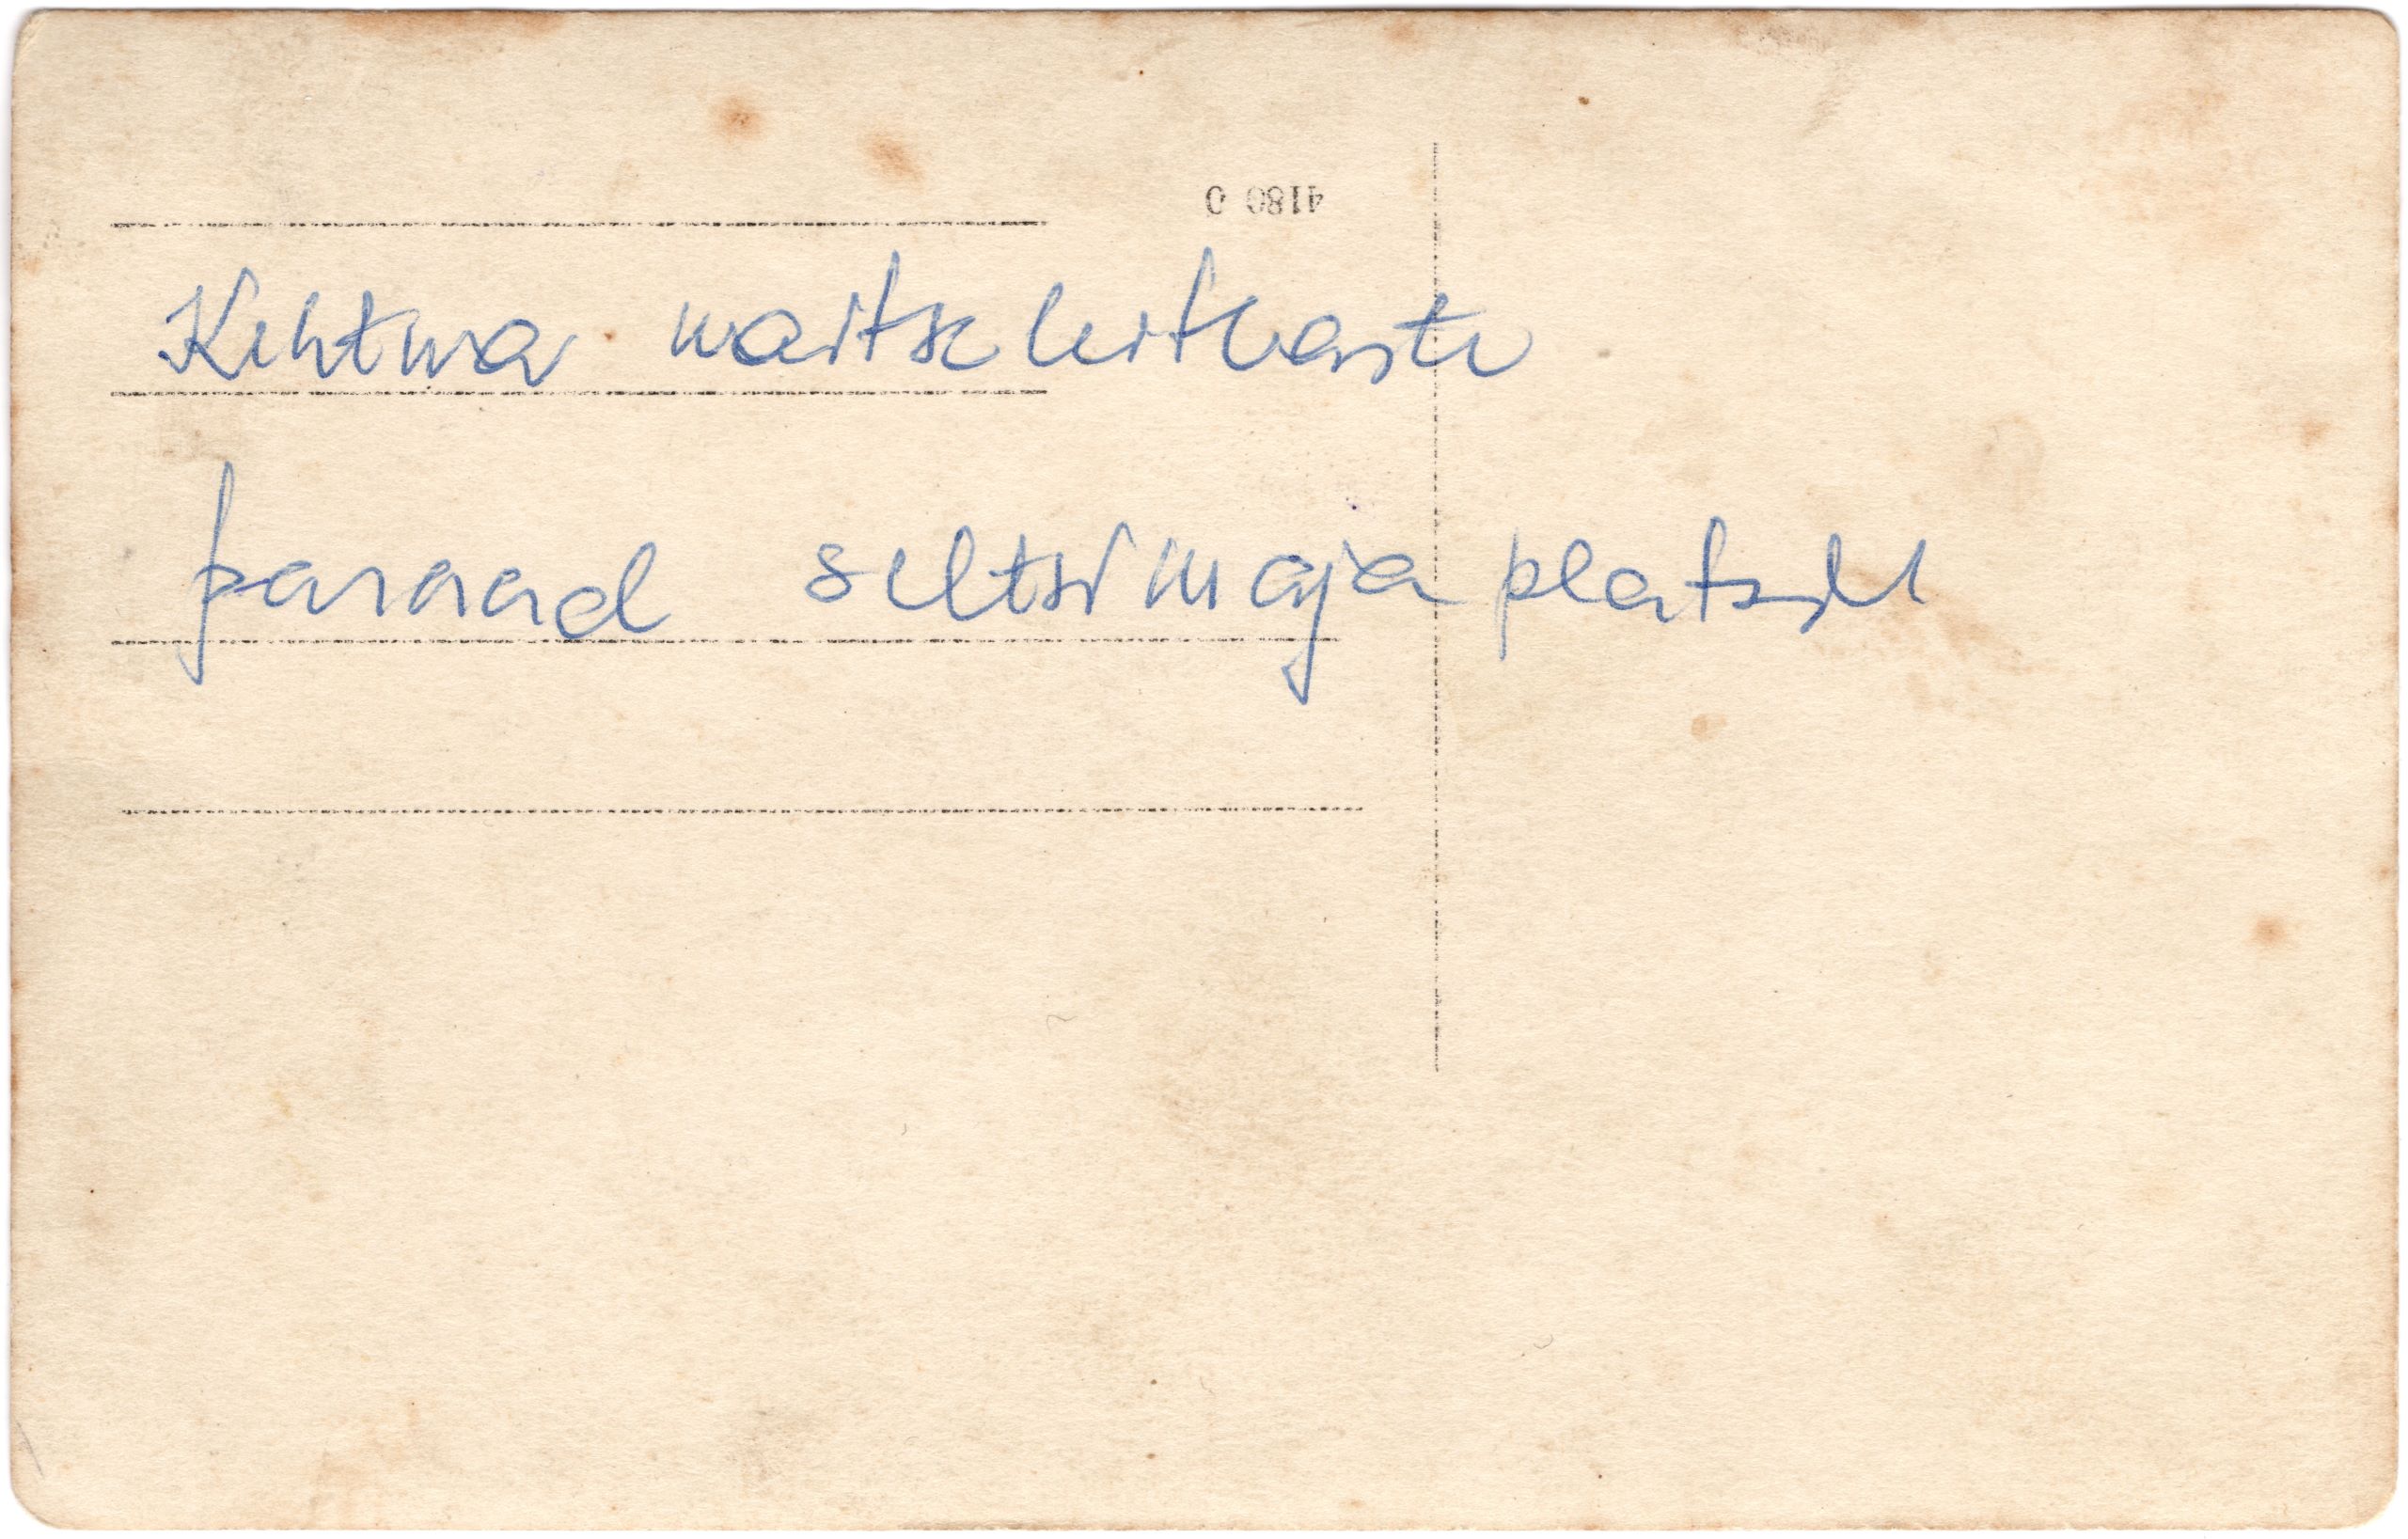 4180 0
Kehtwa waitseliitlaste
paraad seltsimaja platsil